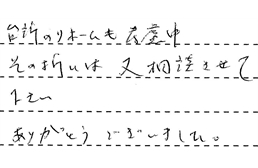 台所のリホームも考慮中
その折いは又相談させて
下さい
ありがとうございました。